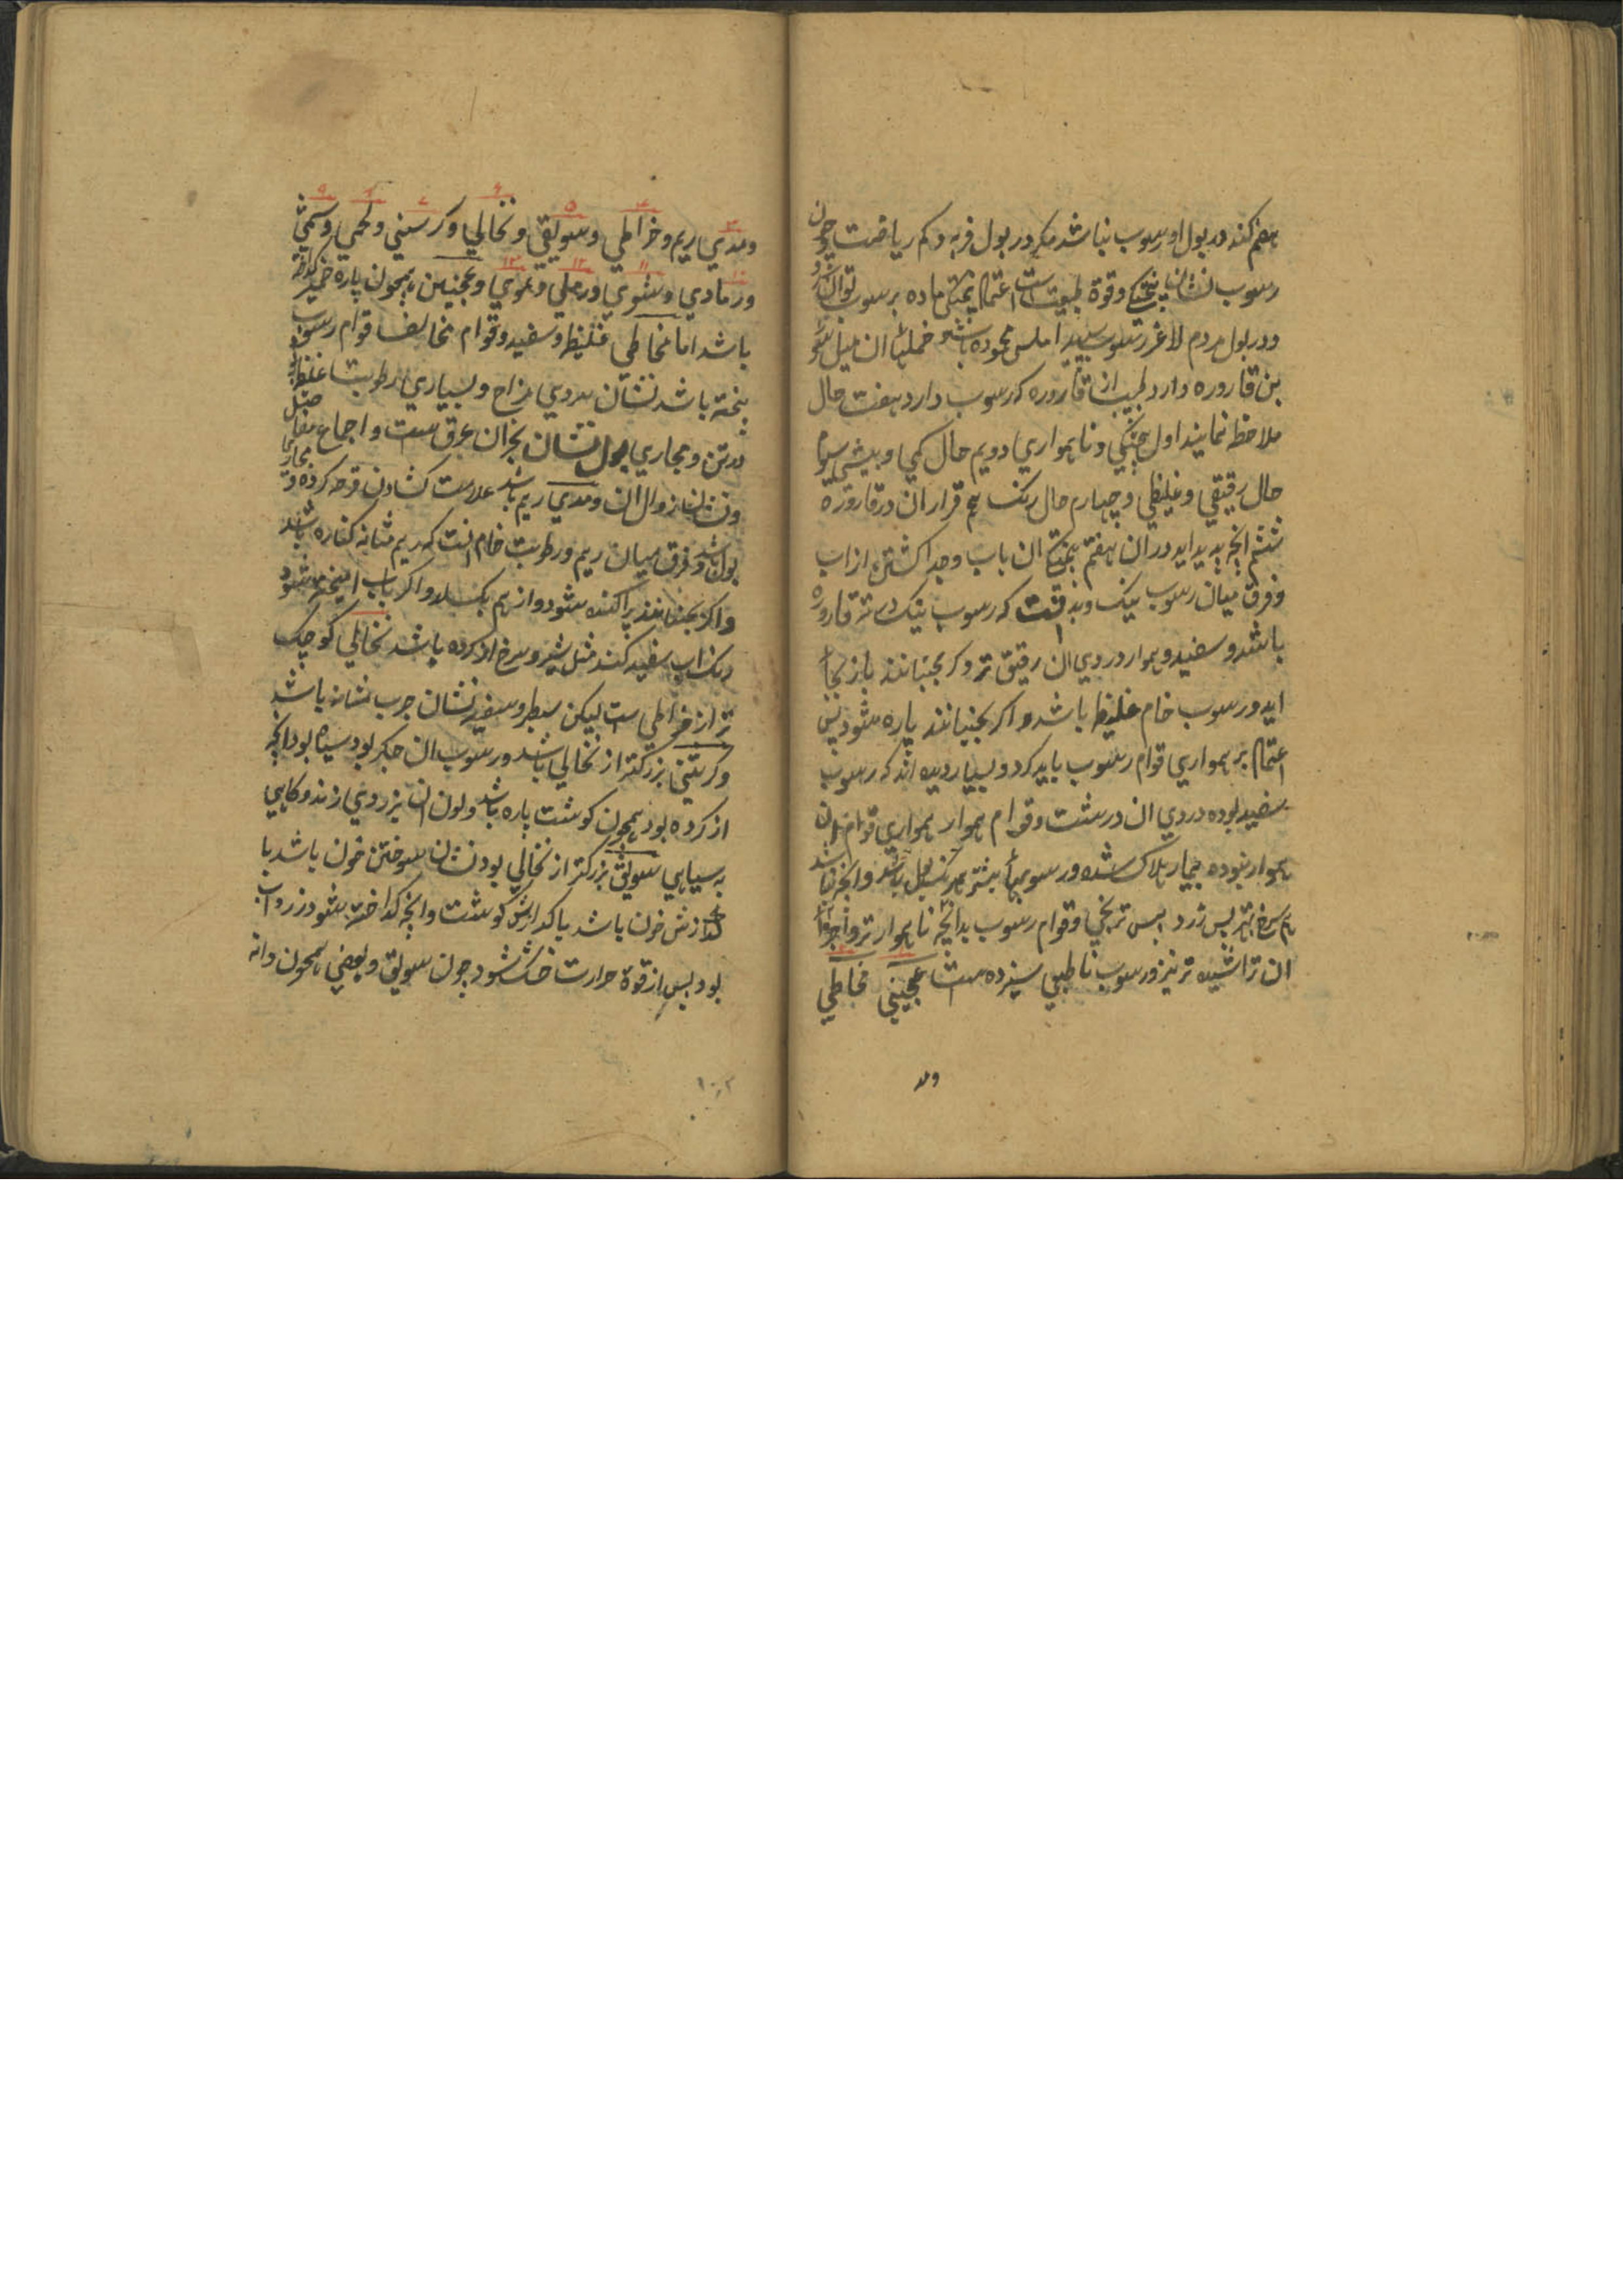 هضم کند در بول او رسوب نباشد مکر در بول فربه و کم ریاضت چون
رسوب نشان پختکی وقوة طبیعت است اعتماد پختکی ماده بر رسوب توان کرد
ودر بول مردم لاغر رسوب سپید املس محموده باشد ان میل سوی
بن قاروره دارد طبیب از قاروره که رسوب دارد هفت حال
ملاحظه نمایند اول پختکی و ناهمواری دویم حال کمی وبیشی سوم
حال رقیقی وغلیظی وچهارم حال رنک پنجم قرار ان در قاروره
ششم انچه پدید اید در ان هفتم ان باب وجدا کشتن از اب
وفرق میان رسوب نیک وبد انست که رسوب نیک در تک قاروره
باشد وسفید وهموار ودردی ان رقیق تر وکر بجنبانند باز بجا
اید ورسوب خام غلیظ باشد واکر بجنبانند پاره شود پس
اعتماد بر همواری قوام رسوب باید کرد وبسیار دیده اند که رسوب
سفید بوده دردی ان درشت وقوام هموار همواری قوام ان
هموار نبوده بیمار هلاک شده ورسوبها بیشتر همرنک بول باشد وانچه نباشد
هم سرخ بهتر پس زرد پس تر بخی وقوام رسوب بدانچه ناهموار تر واجزای
ان تراشیده تر نیز ورسوب نا طبیعی سیزده است عجینی مخاطی
ومد
ومدی ریم وخراطی وسویقی ونخالی وکرسنی ولحمی ودسمی
ورمادی وشوی ورملی ودموی وعجینی همچون پاره خمیر کداخته
باشد اما مخاطی غلیظ وسفید وقوام مخالف قوام رسوب
پخته باشد نشان سردی مزاج وبسیاری رطوبت غلیظ
در تن ومجاری بول نشان بحران عرق است واجماع مفاصل
ونشان زوال ان ومدی ریم باشد علامت کشادن قرحه کرده و مجاری
بول باشد وفرق میان ریم ورطوبت خام انست که ریم مثانه کنداره باشد
واکر بجنبانند پراکنده شود واز هم بکسلد واکر باب امیخته شود
رنک اب سفید کند مثل شیر وسرخ از کرده باشد نخالی کوچک
تر از خراطی است لیکن سطبر وسفید نشان جرب مثانه باشد
وکرسنی بزرکتر از نخالی باشد ورسوب ان جکر بود سیاه بود انچه
از کرده بود همچون کوشت پاره باشد ولون ان بزردی زند وکاهی
به سیاهی سویقی بزرکتر از نخالی بود نشان سوختن خون باشد یا
کدازش خون باشد یا کدازش کوشت وانچه کداخته شود زرداب
بود پس از قوة حرارت خشک شود چون سویق وبعضی همچون دانه